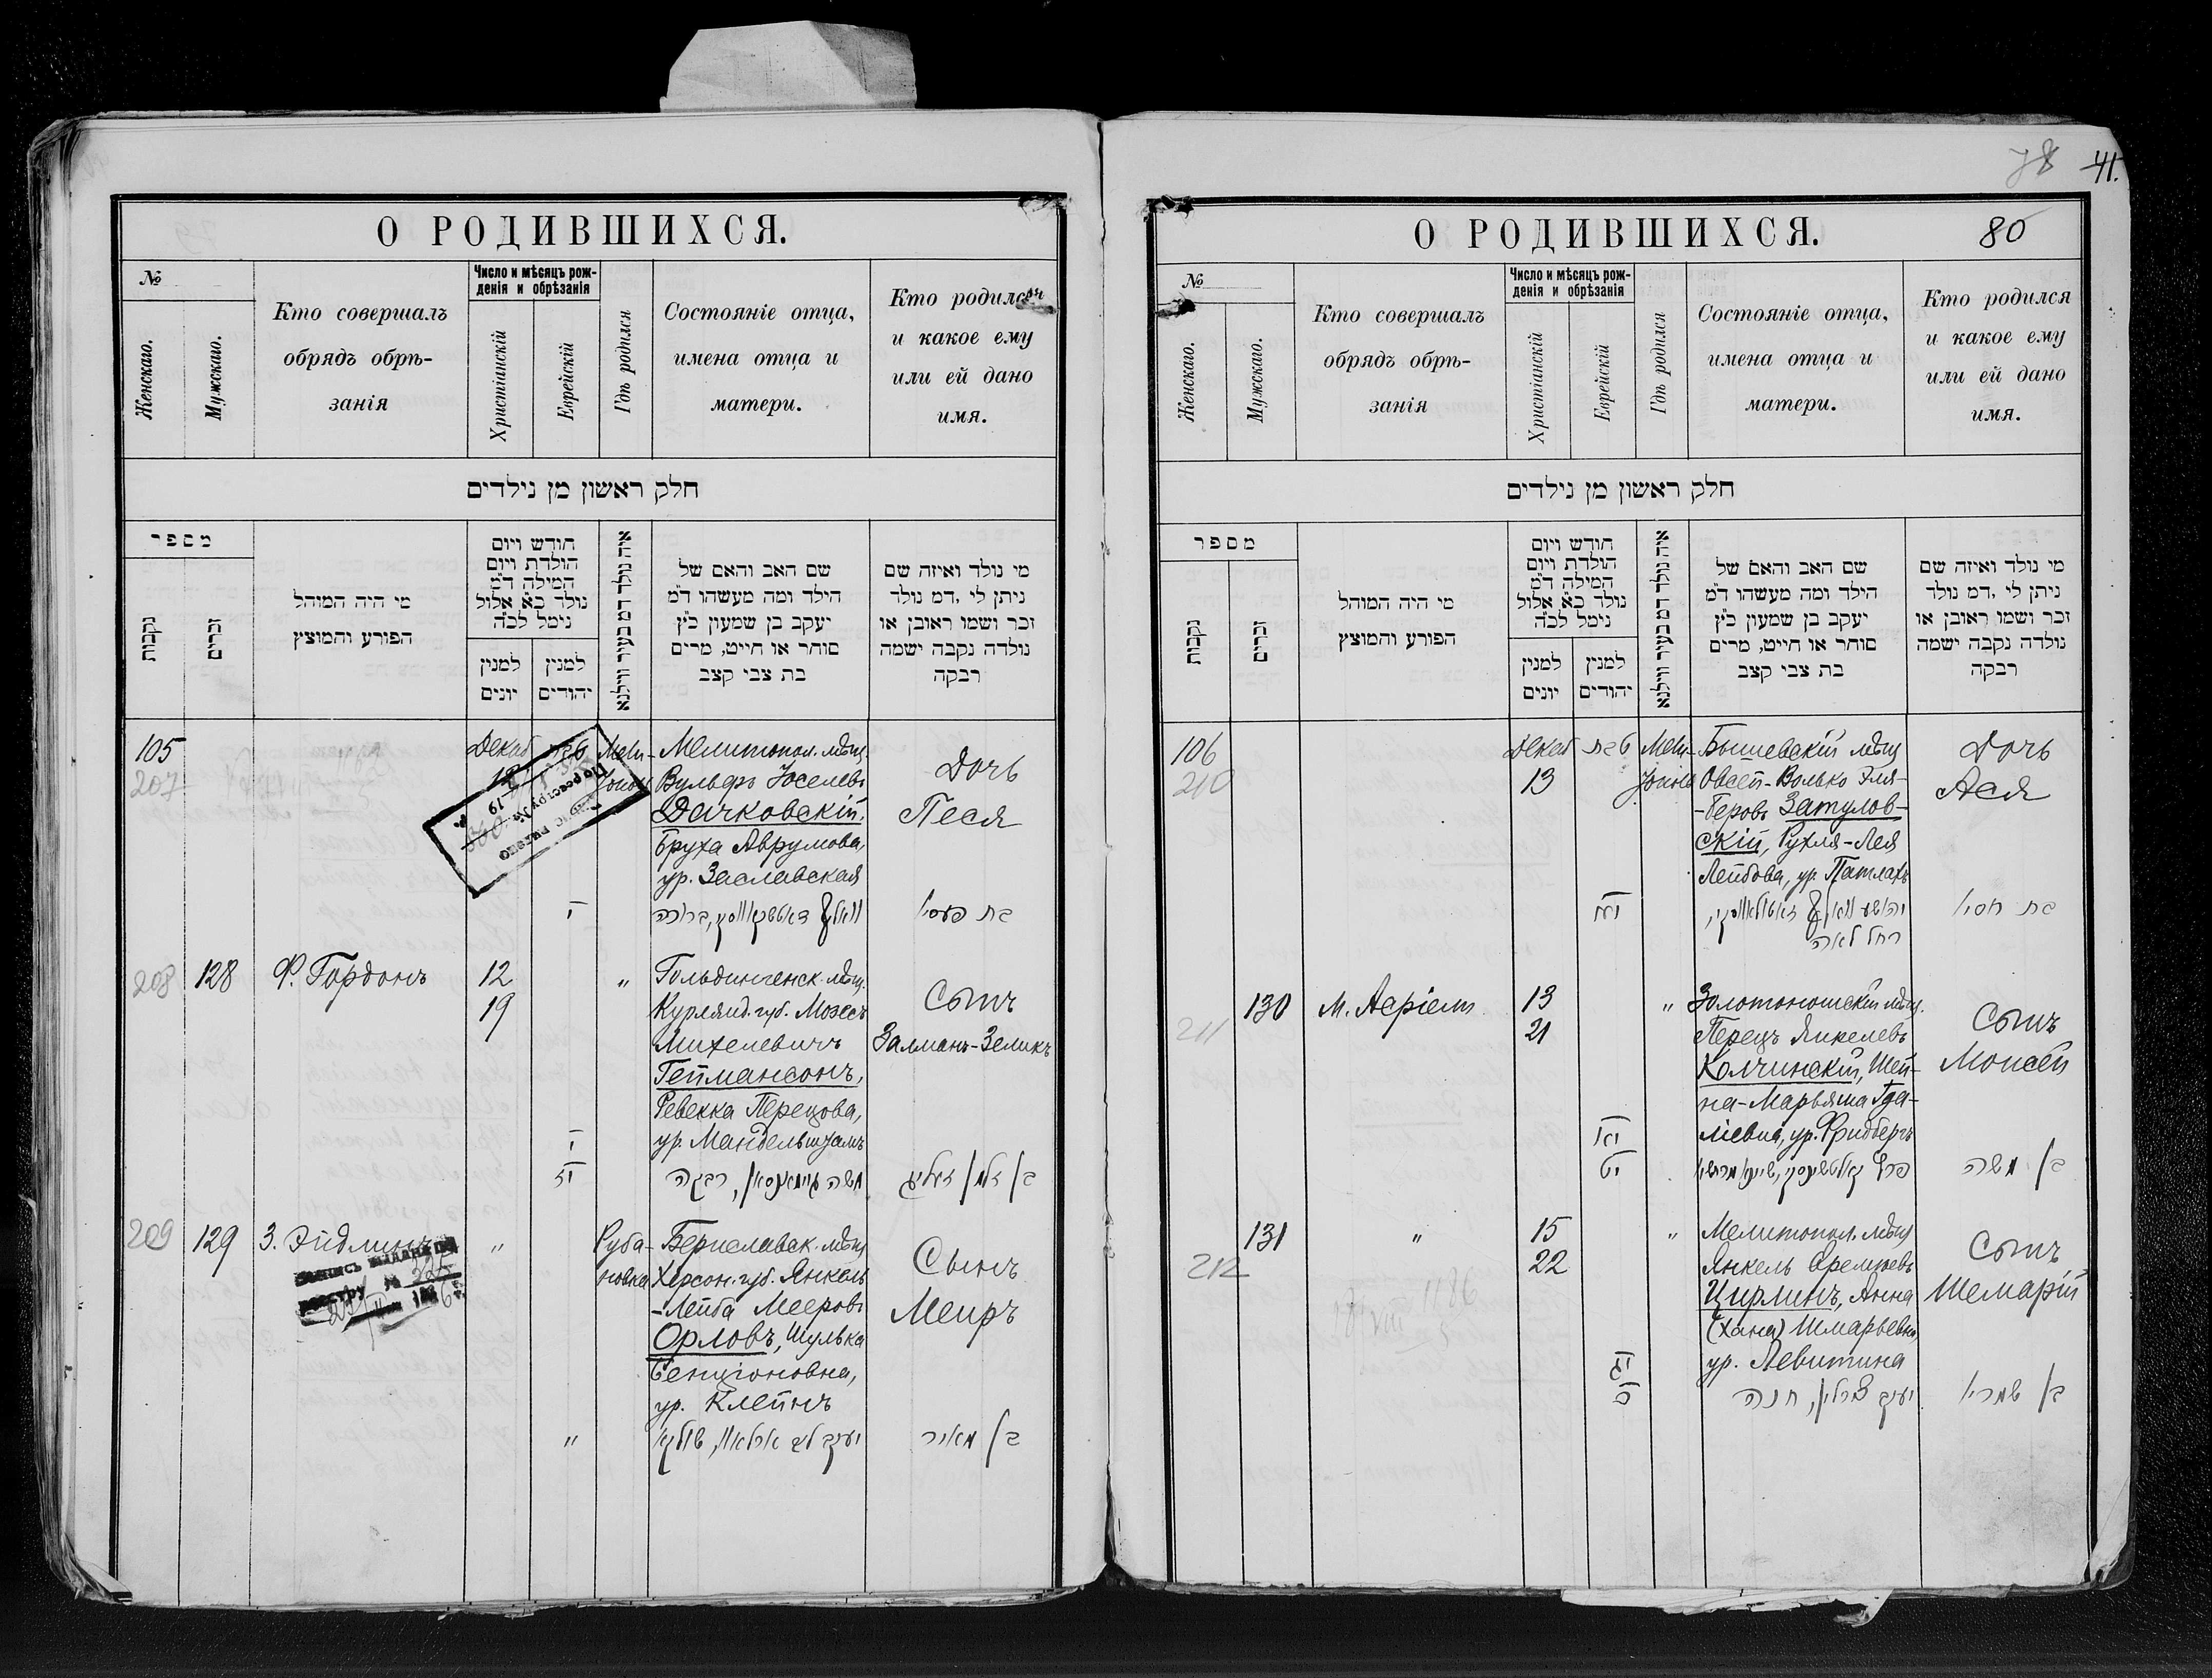 О РОДИВШИХСЯ.
№
Женскаго.
Мужскаго.
Кто совершалъ
обрядъ обрѣ-
занія
Число и мѣсяцъ рож-
денія и обрѣзанія
Христіанскій
Еврейскій
Гдѣ родился
Состояніе отца,
имена отца и
матери.
Кто родился
и какое ему
или ей дано
имя.
חלק ראשון מן נילדים
מספר
נקבות
זכרים
מי היה המוהל
הפורע והמוצץ
חודש ויום
הולדת ויום
המילה ד"מ
נולד כ"א אלול
נימל לכ"ה
למנין
יונים
למנין
יהודים
איה נולד דמ בעיר ווילנא
שם האב והאם של
הילד ומה מעשהו ד"מ
יעקב בן שמעון כ"ץ
סוחר או חייט, מרים
בת צבי קצב
מי נולד ואיזה שם
ניתן לי, דמ נולד
זכר ושמו ראובן או
נולדה נקבה ישמה
רבקה
105
207
Декаб
טבת
Мели-
Мелитопол. мѣщ.
Вульфъ Іоселевъ
Дачковскій,
Бруха Аврумова,
ур. Заславская
Дочь
Песя
י
בת פעסיא
208
128
Ф. Гордонъ
12
19
"
Гольдингенск. мѣщ.
Курлянд. губ. Мозесъ
Михелевичъ
Геймансонъ,
Ревекка Перецова,
ур. Мандельштамъ
Сынъ
Залманъ-Зеликъ
י
יז
בן זלמן זעליג
209
129
З. Эйдлинъ
"
Руба-
новка
Бериславск. мѣщ.
Херсон. губ. Янкель
-Лейба Мееровъ
Орловъ, Шулька
Бенціоновна,
ур. Клейнъ
Сынъ
Меиръ
"
בן מאיר
78
41.
О РОДИВШИХСЯ.
80
№
Женскаго.
Мужскаго.
Кто совершалъ
обрядъ обрѣ-
занія
Число и мѣсяцъ рож-
денія и обрѣзанія
Христіанскій
Еврейскій
Гдѣ родился
Состояніе отца,
имена отца и
матери.
Кто родился
и какое ему
или ей дано
имя.
חלק ראשון מן נילדים
מספר
נקבות
זכרים
מי היה המוהל
הפורע והמוצץ
חודש ויום
הולדת ויום
המילה ד"מ
נולד כ"א אלול
נימל לכ"ה
למנין
יונים
למנין
יהודים
איה נולד דמ בעיר ווילנא
שם האב והאם של
הילד ומה מעשהו ד"מ
יעקב בן שמעון כ"ץ
סוחר או חייט, מרים
בת צבי קצב
מי נולד ואיזה שם
ניתן לי, דמ נולד
זכר ושמו ראובן או
נולדה נקבה ישמה
רבקה
106
210
Декаб
13
טבת
Мели-
Овсей-Волько Эля-
-беровъ Затулов-
скій, Рухля-Лея
Лейбова, ур. Патлахъ
רחל לאה
Дочь
Ася
130
211
М. Асріель
13
21
"
Золотоношскій мѣщ.
Перецъ Янкелевъ
Колчинскій, Шей-
на-Марьяша Гда-
ліевна, ур. Фридбергъ
Сынъ
Моисей
יא
יט
בן משה
131
212
"
15
22
"
Мелитопол. мѣщ
Янкель Сремеевъ
Цирлинъ, Анна
(Хана) Шмарьевна
ур. Левитина
Сынъ
Шемарій
יג
כ
יעקב צירלין, חנה
בן שמריא